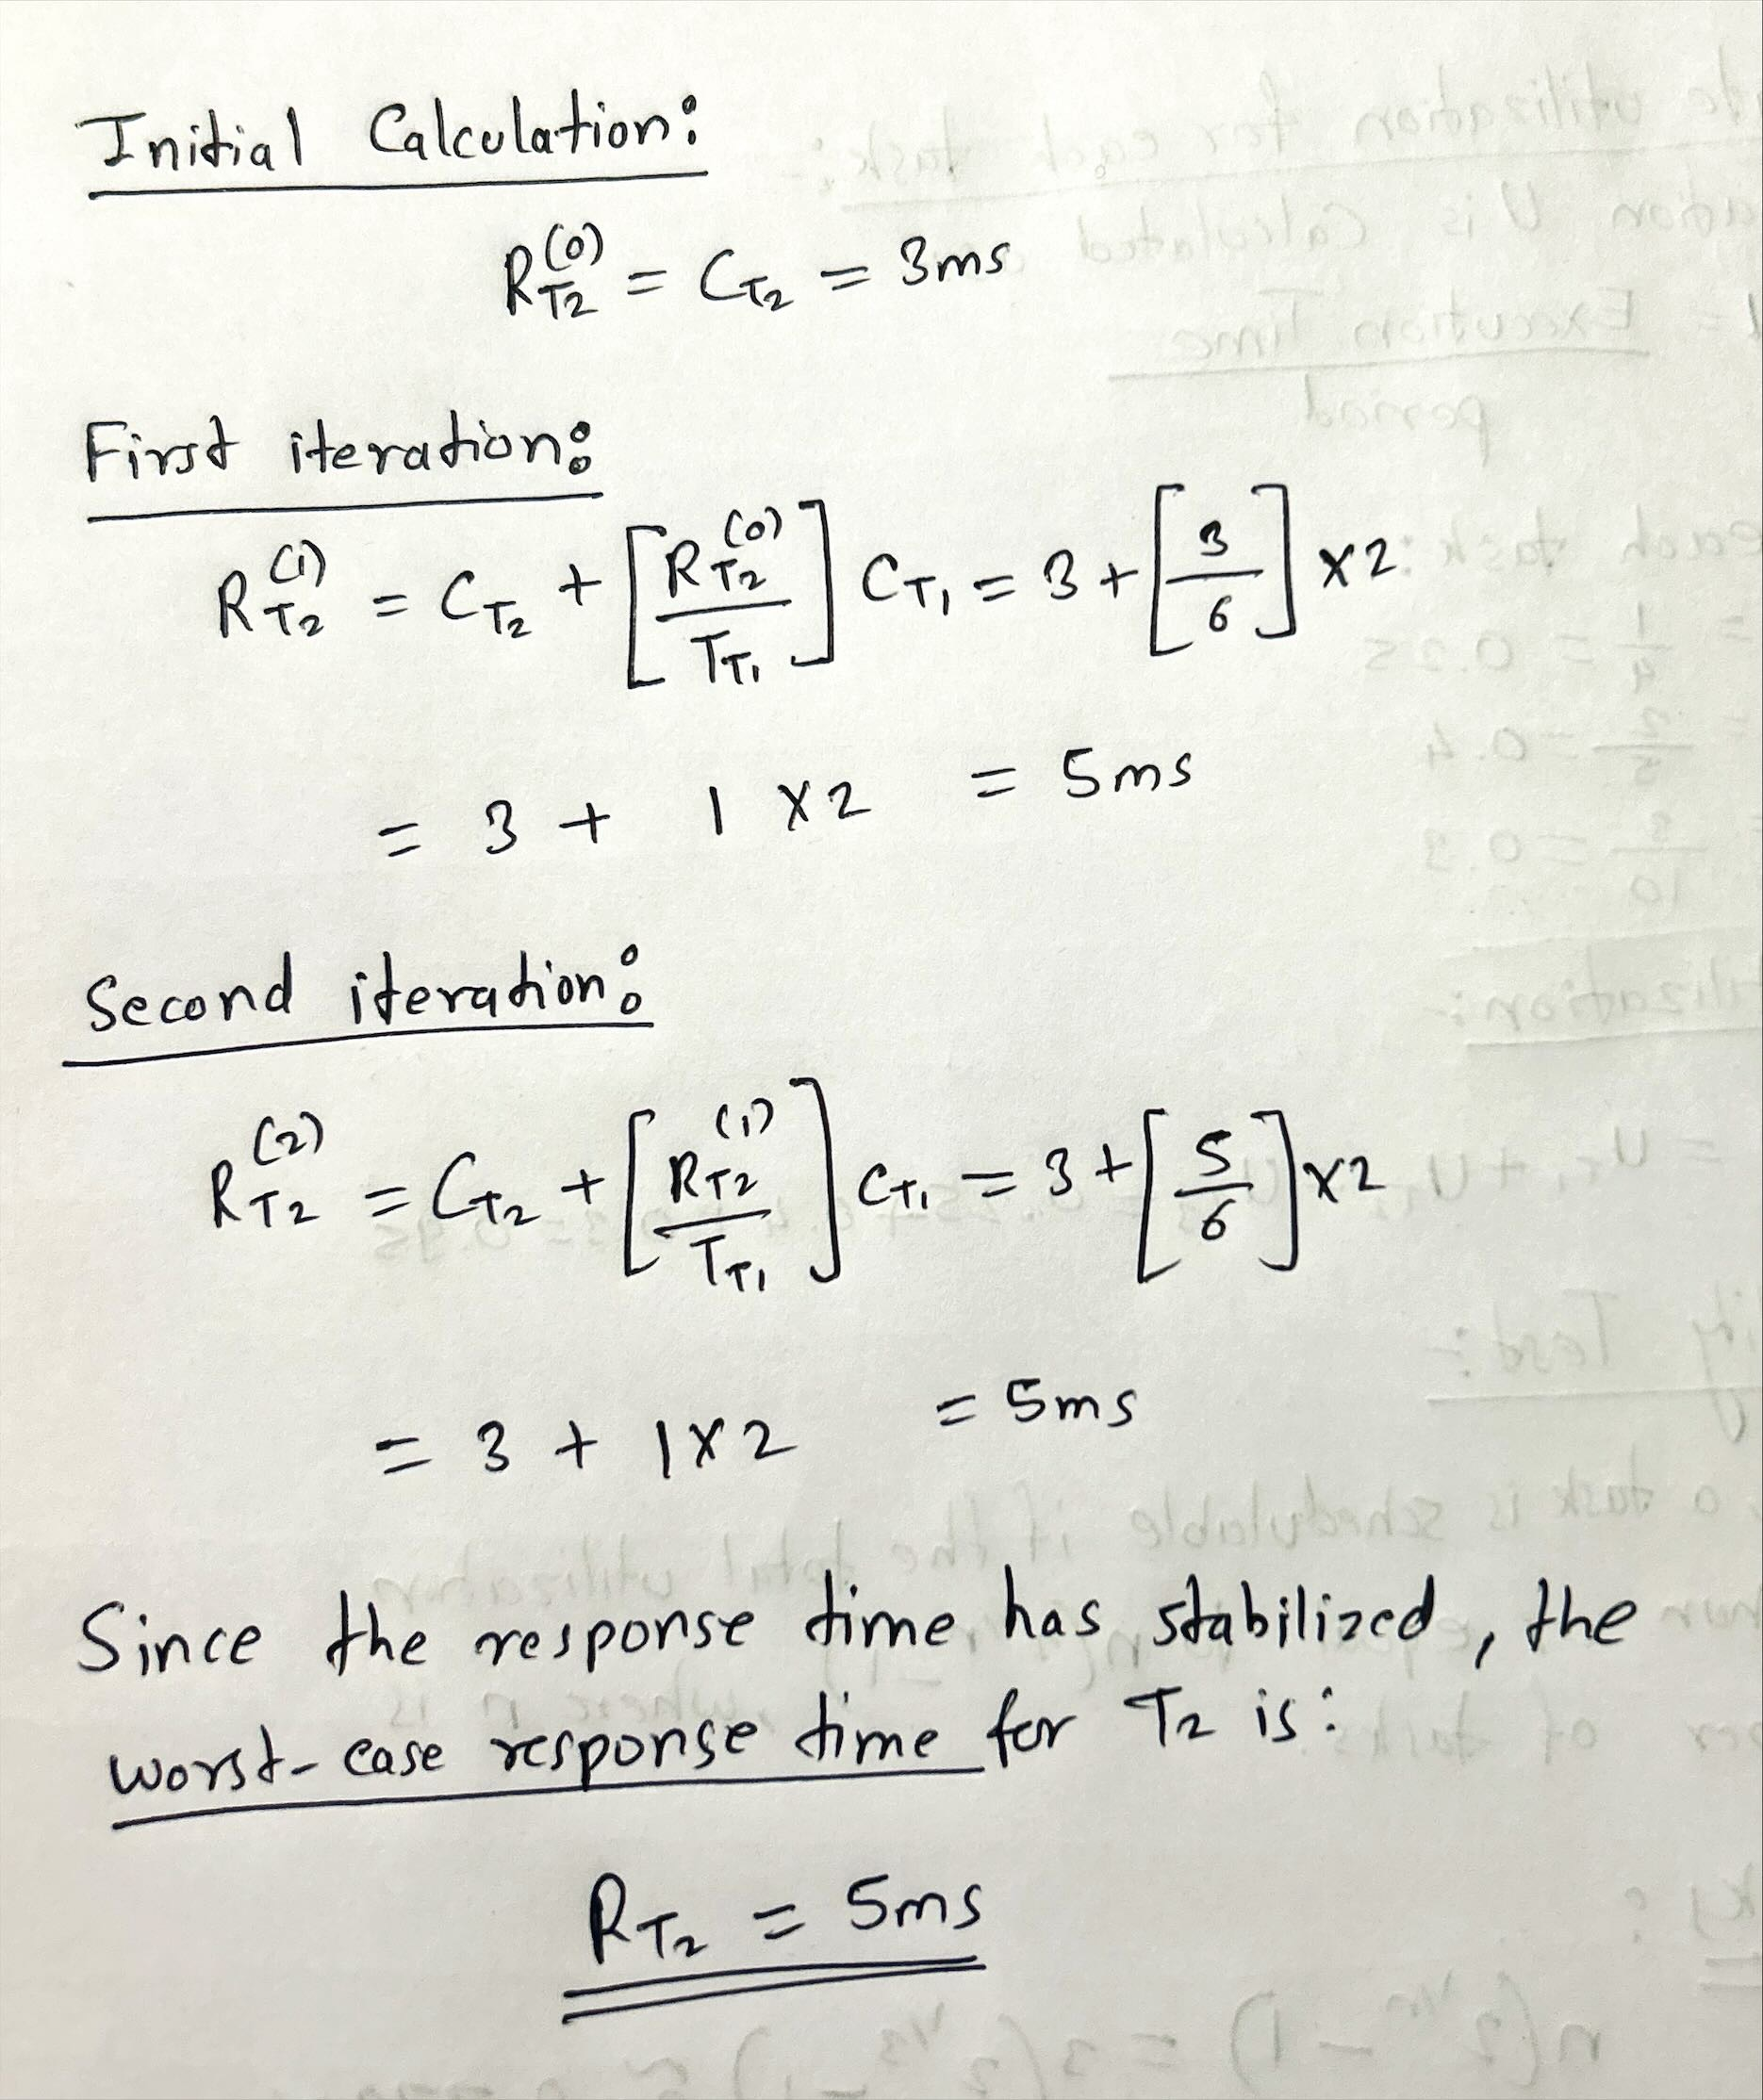 Initial Calculation:
R_T2^(0) = C_T2 = 3ms
First iteration:
R_T2^(1) = C_T2 + [R_T2^(0) / T_T1] C_T1 = 3 + [3/6] × 2
= 3 + 1 × 2 = 5ms
Second iteration:
R_T2^(2) = C_T2 + [R_T2^(1) / T_T1] C_T1 = 3 + [5/6] × 2
= 3 + 1 × 2 = 5ms
Since the response time has stabilized, the
worst-case response time for T2 is:
R_T2 = 5ms